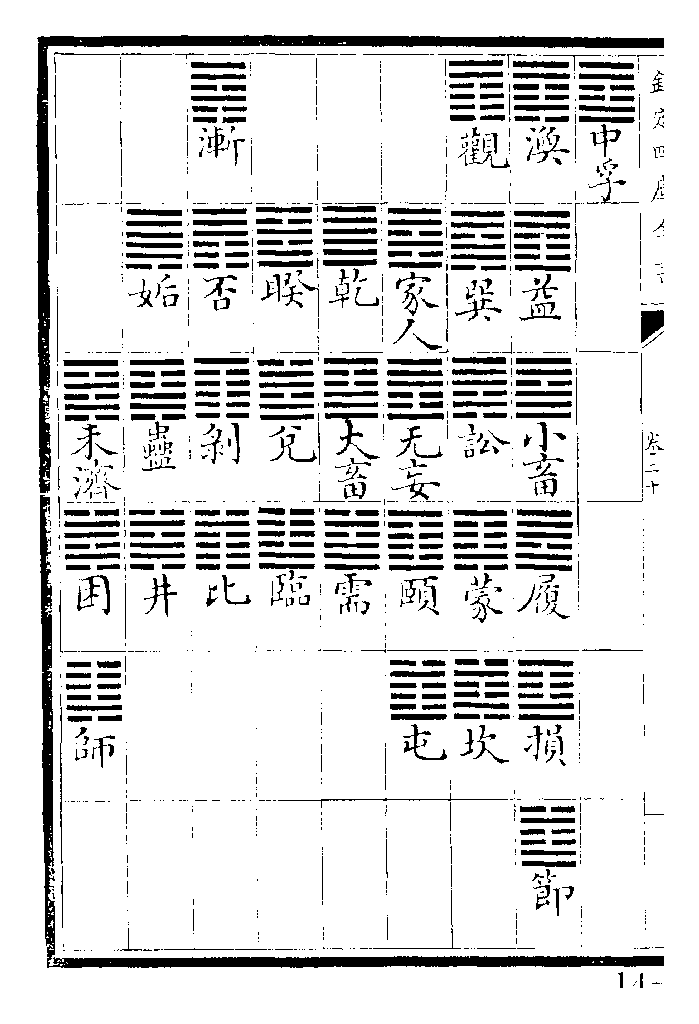 欽定四庫全書
卷二十
中孚
渙
益
小畜
履
損
節
觀
巽
訟
蒙
坎
家人
无妄
頤
屯
乾
大畜
需
睽
兌
臨
漸
否
剝
比
姤
蠱
井
未濟
困
師
14-